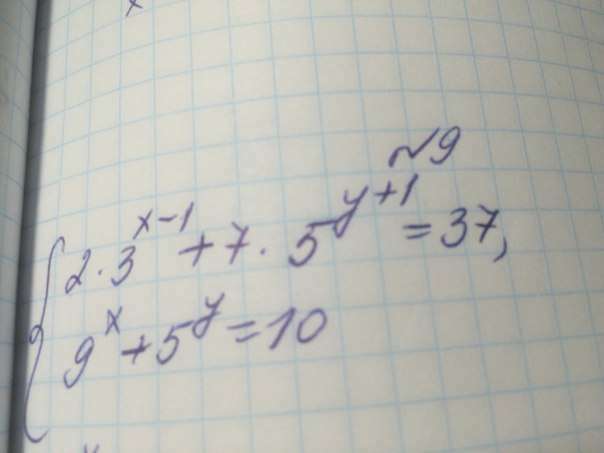 №9
2·3^{x-1}+7·5^{y+1}=37,
9^x+5^y=10